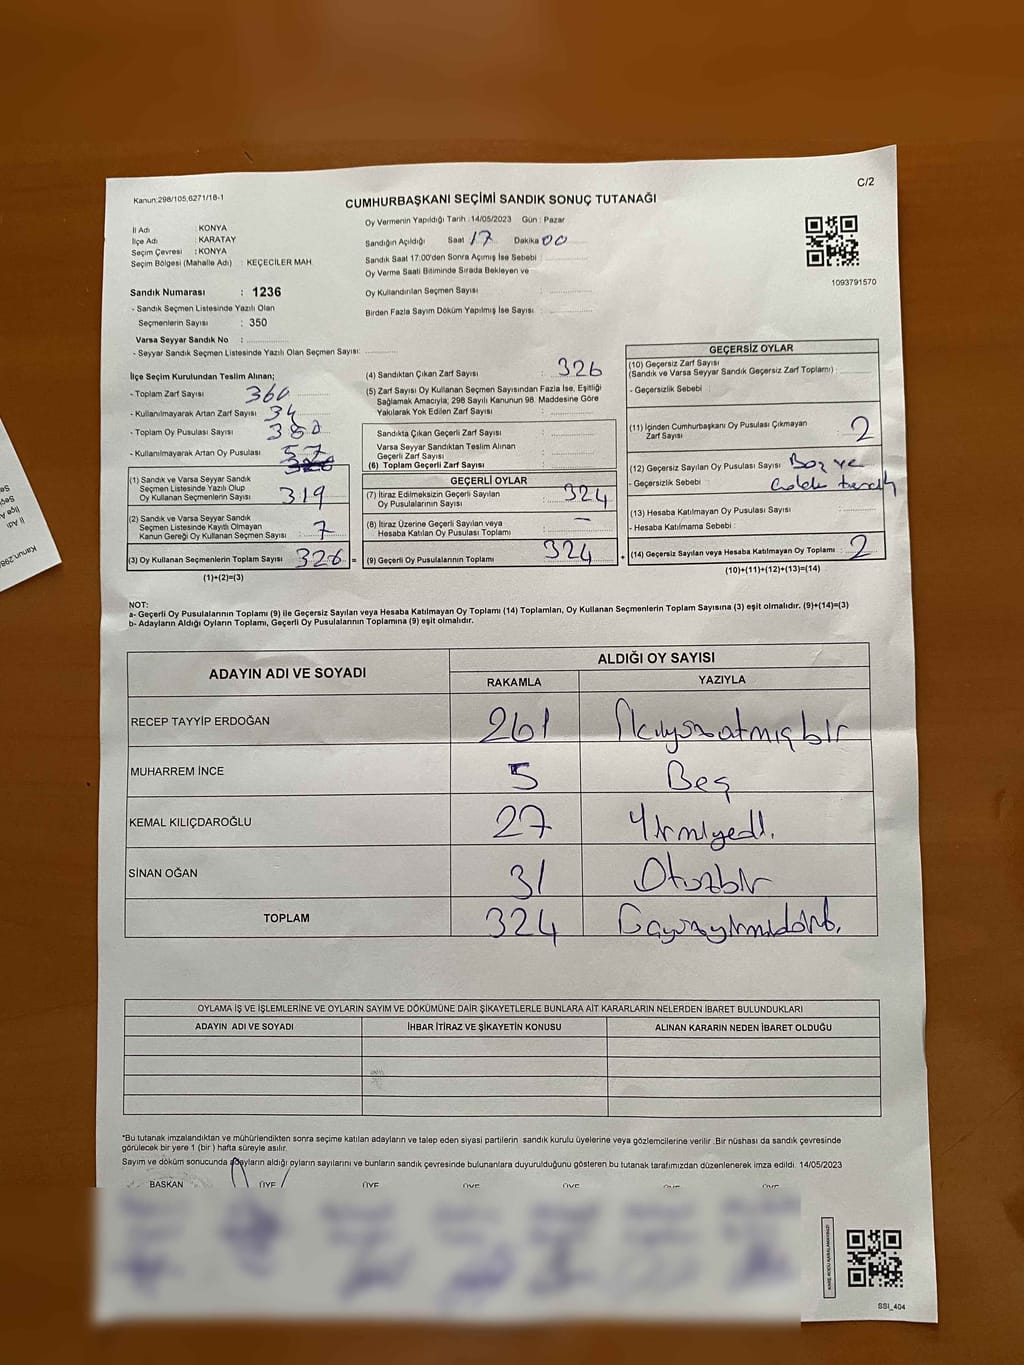 C/2
Kanun:298/105,6271/18-1
CUMHURBAŞKANI SEÇİMİ SANDIK SONUÇ TUTANAĞI
İl Adı : KONYA
İlçe Adı : KARATAY
Seçim Çevresi : KONYA
Seçim Bölgesi (Mahalle Adı) : KEÇECİLER MAH
Sandık Numarası : 1236
- Sandık Seçmen Listesinde Yazılı Olan
Seçmenlerin Sayısı : 350
Varsa Seyyar Sandık No :
- Seyyar Sandık Seçmen Listesinde Yazılı Olan Seçmen Sayısı:
Oy Vermenin Yapıldığı Tarih :14/05/2023 Gün : Pazar
Sandığın Açıldığı Saat 17 Dakika 00
Sandık Saat 17:00'den Sonra Açımış İse Sebebi :
Oy Verme Saati Bitiminde Sırada Bekleyen ve
Oy Kullandırılan Seçmen Sayısı :
Birden Fazla Sayım Döküm Yapılmış İse Sayısı :
1093791570
İlçe Seçim Kurulundan Teslim Alınan;
- Toplam Zarf Sayısı : 360
- Kullanılmayarak Artan Zarf Sayısı : 34
- Toplam Oy Pusulası Sayısı : 380
- Kullanılmayarak Artan Oy Pusulası : 57
(1) Sandık ve Varsa Seyyar Sandık
Seçmen Listesinde Yazılı Olup
Oy Kullanan Seçmenlerin Sayısı : 319
(2) Sandık ve Varsa Seyyar Sandık
Seçmen Listesinde Kayıtlı Olmayan
Kanun Gereği Oy Kullanan Seçmen Sayısı : 7
(3) Oy Kullanan Seçmenlerin Toplam Sayısı : 326 =
(1)+(2)=(3)
(4) Sandıktan Çıkan Zarf Sayısı : 326
(5) Zarf Sayısı Oy Kullanan Seçmen Sayısından Fazla İse, Eşitliği
Sağlamak Amacıyla; 298 Sayılı Kanunun 98. Maddesine Göre
Yakılarak Yok Edilen Zarf Sayısı :
Sandıkta Çıkan Geçerli Zarf Sayısı :
Varsa Seyyar Sandıktan Teslim Alınan
Geçerli Zarf Sayısı :
(6) Toplam Geçerli Zarf Sayısı :
GEÇERLİ OYLAR
(7) İtiraz Edilmeksizin Geçerli Sayılan
Oy Pusulalarının Sayısı : 324
(8) İtiraz Üzerine Geçerli Sayılan veya
Hesaba Katılan Oy Pusulası Toplamı : –
(9) Geçerli Oy Pusulalarının Toplamı : 324 +
GEÇERSİZ OYLAR
(10) Geçersiz Zarf Sayısı
(Sandık ve Varsa Seyyar Sandık Geçersiz Zarf Toplamı) :
- Geçersizlik Sebebi :
(11) İçinden Cumhurbaşkanı Oy Pusulası Çıkmayan
Zarf Sayısı : 2
(12) Geçersiz Sayılan Oy Pusulası Sayısı : Boz ve
- Geçersizlik Sebebi :
(13) Hesaba Katılmayan Oy Pusulası Sayısı :
- Hesaba Katılmama Sebebi :
(14) Geçersiz Sayılan veya Hesaba Katılmayan Oy Toplamı : 2
(10)+(11)+(12)+(13)=(14)
NOT:
a- Geçerli Oy Pusulalarının Toplamı (9) ile Geçersiz Sayılan veya Hesaba Katılmayan Oy Toplamı (14) Toplamları, Oy Kullanan Seçmenlerin Toplam Sayısına (3) eşit olmalıdır. (9)+(14)=(3)
b- Adayların Aldığı Oyların Toplamı, Geçerli Oy Pusulalarının Toplamına (9) eşit olmalıdır.
ADAYIN ADI VE SOYADI ALDIĞI OY SAYISI
RAKAMLA YAZIYLA
RECEP TAYYİP ERDOĞAN 261 İkiyüzatmışbir
MUHARREM İNCE 5 Beş
KEMAL KILIÇDAROĞLU 27 Yirmiyedi.
SİNAN OĞAN 31 Otuzbir
TOPLAM 324
OYLAMA İŞ VE İŞLEMLERİNE VE OYLARIN SAYIM VE DÖKÜMÜNE DAİR ŞİKAYETLERLE BUNLARA AİT KARARLARIN NELERDEN İBARET BULUNDUKLARI
ADAYIN ADI VE SOYADI İHBAR İTİRAZ VE ŞİKAYETİN KONUSU ALINAN KARARIN NEDEN İBARET OLDUĞU
*Bu tutanak imzalandıktan ve mühürlendikten sonra seçime katılan adayların ve talep eden siyasi partilerin sandık kurulu üyelerine veya gözlemcilerine verilir .Bir nüshası da sandık çevresinde
görülecek bir yere 1 (bir ) hafta süreyle asılır.
Sayım ve döküm sonucunda adayların aldığı oyların sayılarını ve bunların sandık çevresinde bulunanlara duyurulduğunu gösteren bu tutanak tarafımızdan düzenlenerek imza edildi. 14/05/2023
BAŞKAN ÜYE ÜYE ÜYE ÜYE ÜYE ÜYE
SSI_404